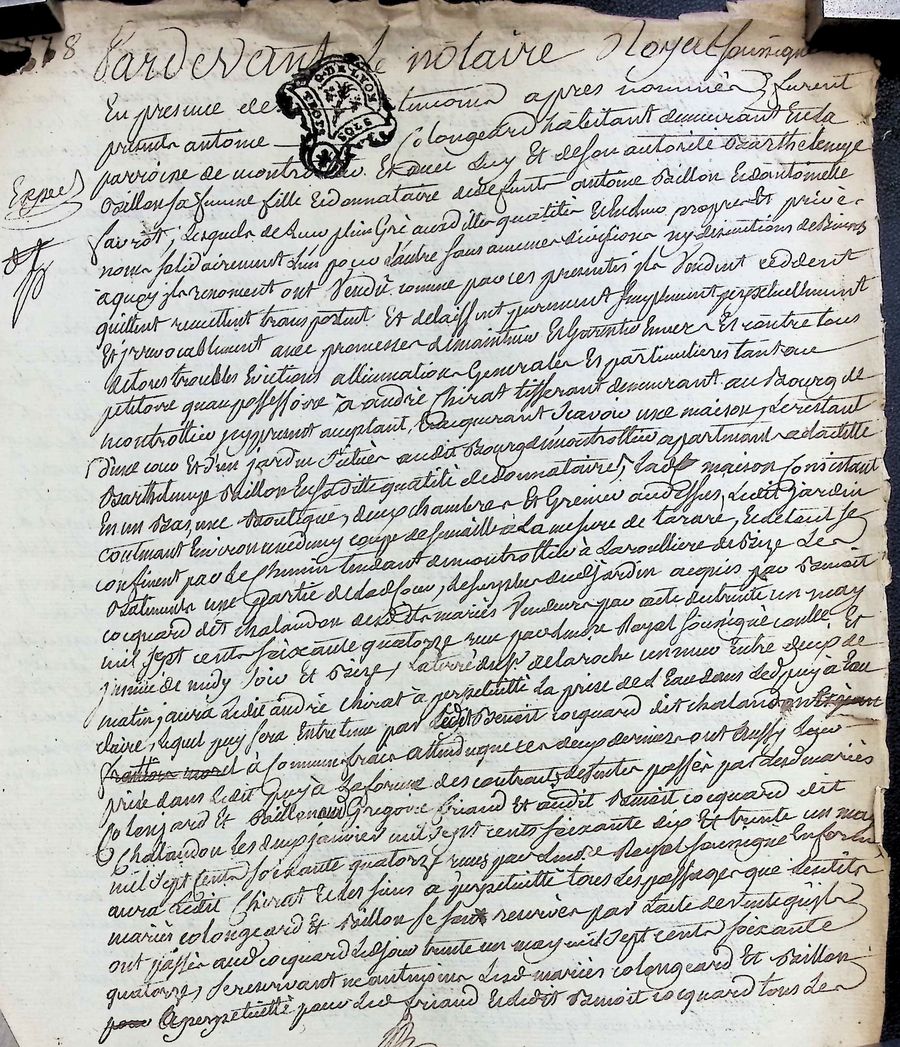 Pardevant le notaire Royal soussigné
En presence des temoins apres nommés furent
presents antoine Colongeard habitant demeurant en la
parroisse de montrottier Et avec luy Et de son autorité Barthelemye
Expedié
Baillon sa femme fille Et donnataire de defunts antoine Baillon Et d'antoinette
favrot, lesquels de leur plein Gré auxdittes qualités Et en leurs propres Et privés
noms solidairement l'un pour l'autre sans aucune division ny discutions de Biens
a quoy ils renoncent ont Vendû comme par ces presentes ils Vendent ceddent
quittent remettent transportent Et delaissent purement simplement perpetuellement
Et irrevocablement avec promesses de maintenir Et Garentir Envers Et contre tous
de tous troubles Evictions alliennations Generales Et particulieres tant au
petitoire qu'au possessoire à andré Chirat tisserant demeurant au Bourg de
montrottier icy present acceptant, Et acquerant scavoir une maison, le restant
d'une cour Et d'un jardin situés audit Bourg de montrottier apartenants a laditte
Barthelemye Baillon En sa ditte qualité de donnataire, lad. maison consistant
En un Bas, une Boutique, deux chambres Et Grenier audessus, Ledit jardin
contenant Environ une demy coupe de semaille à La mesure de tarare, Et le tout se
confinent par Le Chemin tendant de montrottier à La de Bize Les
Batiments une partie de lad. cour, Le surplus dud. jardin acquis par Benoit
cocquard dit chalandon desdits mariés Vendeurs par acte du trente un may
mil sept cents soixante quatorze reçu par le notaire Royal soussigné Et
de midy soir Et Bize, La terre du sr delaroche un mur Entre deux de
matin, aura Ledit andré Chirat à perpetuitté La prise de l'Eau dans Le puy à Eau
claire, lequel puy sera Entretenu par Ledit Benoit cocquard dit chalandon
à communs frais attendu que ces deux derniers ont aussy Leur
prise dans Ledit puy à La forme des contrats de ventes passés par lesd. mariés
Colongeard Et Baillon aud. Gregoire friaud Et audit Benoit cocquard dit
Chalandon Les deux janvier mil sept cents soixante dix Et trente un may
mil sept cents soixante quatorze reçus par le notaire Royal soussigné Enfin
aura Ledit Chirat Et les siens à perpetuitté tous Les passages que lesdits
mariés colongeard Et Baillon se sont reservés par l'acte de vente qu'ils
ont passés aud. cocquard Led. jour trente un may mil sept cents soixante
quatorze, se reservant neantmoins Lesd. mariés colongeard Et Baillon
a perpetuitté pour Led. friaud Et Ledit Benoit cocquard tous Les